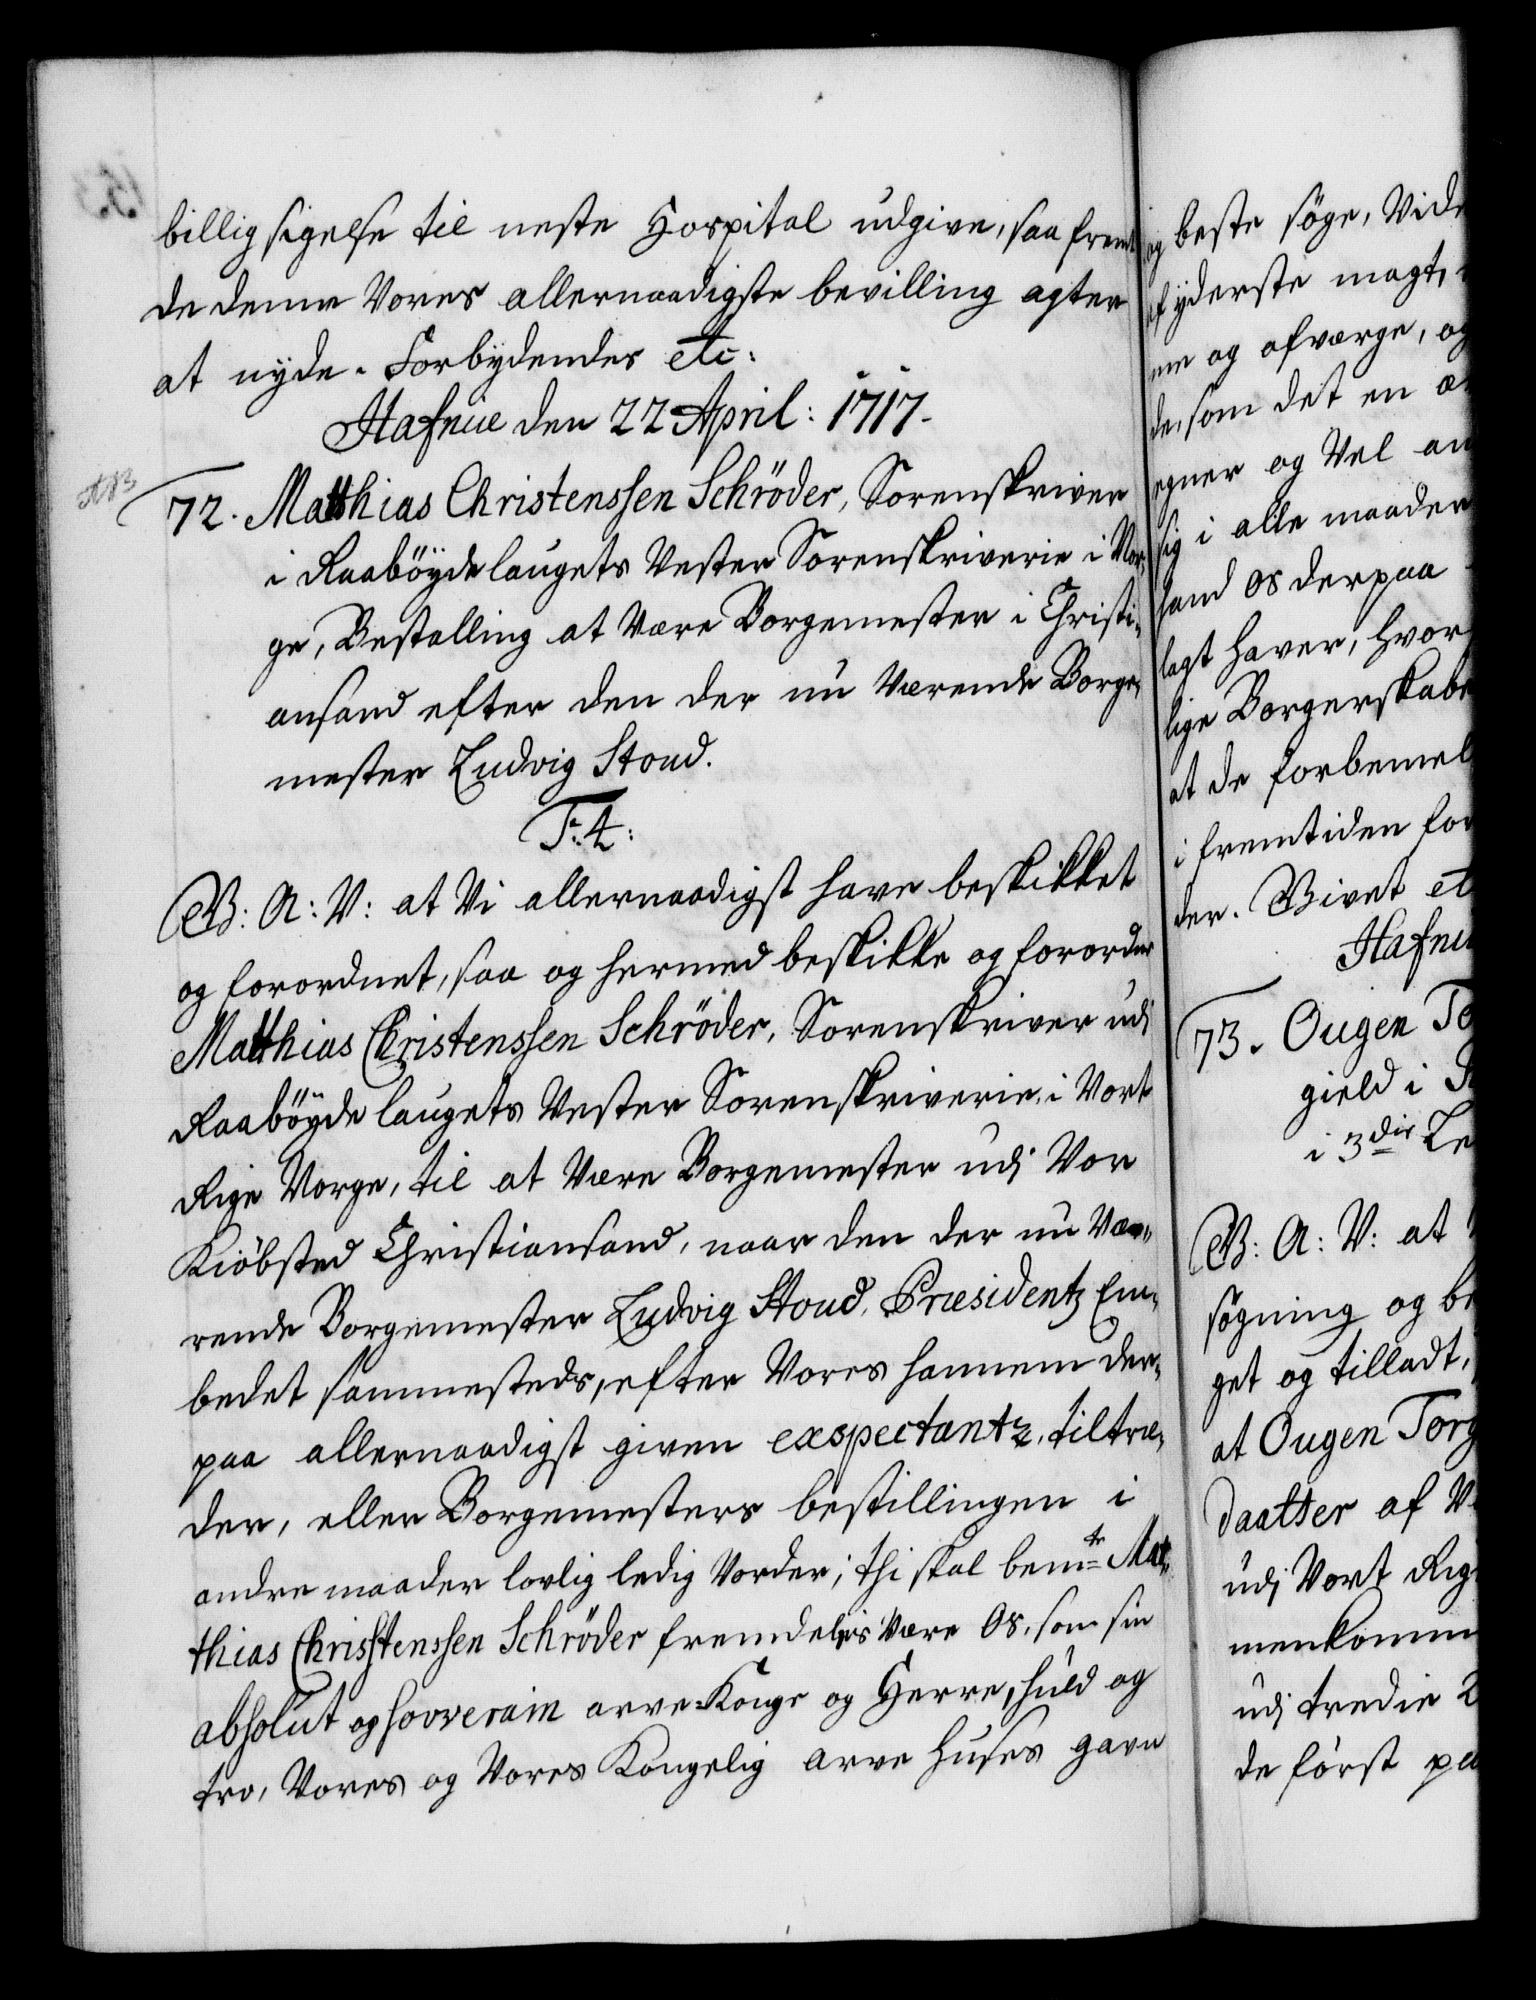 billig sigelse til neste Hospital udgive, saa fremt
de denne Vores allernaadigste bevilling agter
at nyde. Forbydendes etc:
Hafniæ den 22 April: 1717.
NB
72. Matthias Christenssen Schröder, Sorenskriver
i Raaböyde laugets Vester Sorenskriverie i Nor,
ge, Bestalling at være Borgemester i Christi,
ansand efter den der nu Værende Borge,
mester Ludvig Stoud.
F: 4:
G: A: V: at Vi allernaadigst have beskikket
og forordnet, saa og hermed beskikke og forordne
Matthias Christenssen Schröder, Sorenskriver udj
Raaböyde laugets Vester Sorenskriverie, i Vort
Rige Norge, til at være Borgemester udj Vor
Kiöbsted Christiansand, naar den der nu Væ,,
rende Borgemester Ludvig Stoud, Præsidentz Em,
bedet sammesteds, efter Vores hannem der,
paa allernaadigst given exspectantz, tiltræ,
der, eller Borgemesters bestillingen i
andre maader lovlig ledig Vorder; thi skal bemte Mat,
thias Christenssen Schröder fremdelis være Os, som sin
absolut og souverain arve-Konge og Herre, huld og
tro, Vores og Vores Kongelig arve Huses gavn
og beste söge, Vide
yderste magt,
me og afværge, og
de, som det en æ
egner og Vel an
sig i alle maader
hand Os derpaa
lagt haver, hvor
lige Borgerskabe
at de forbemel
i fremtiden for
der. Givet et
Hafni
73. Ougen To
gield i
i 3die Le
G: A: V: at
søgning og be
get og tilladt,
at Ougen Torg
daatter af V
udj Vort Rig
menkomm
udj tredie
de först paa